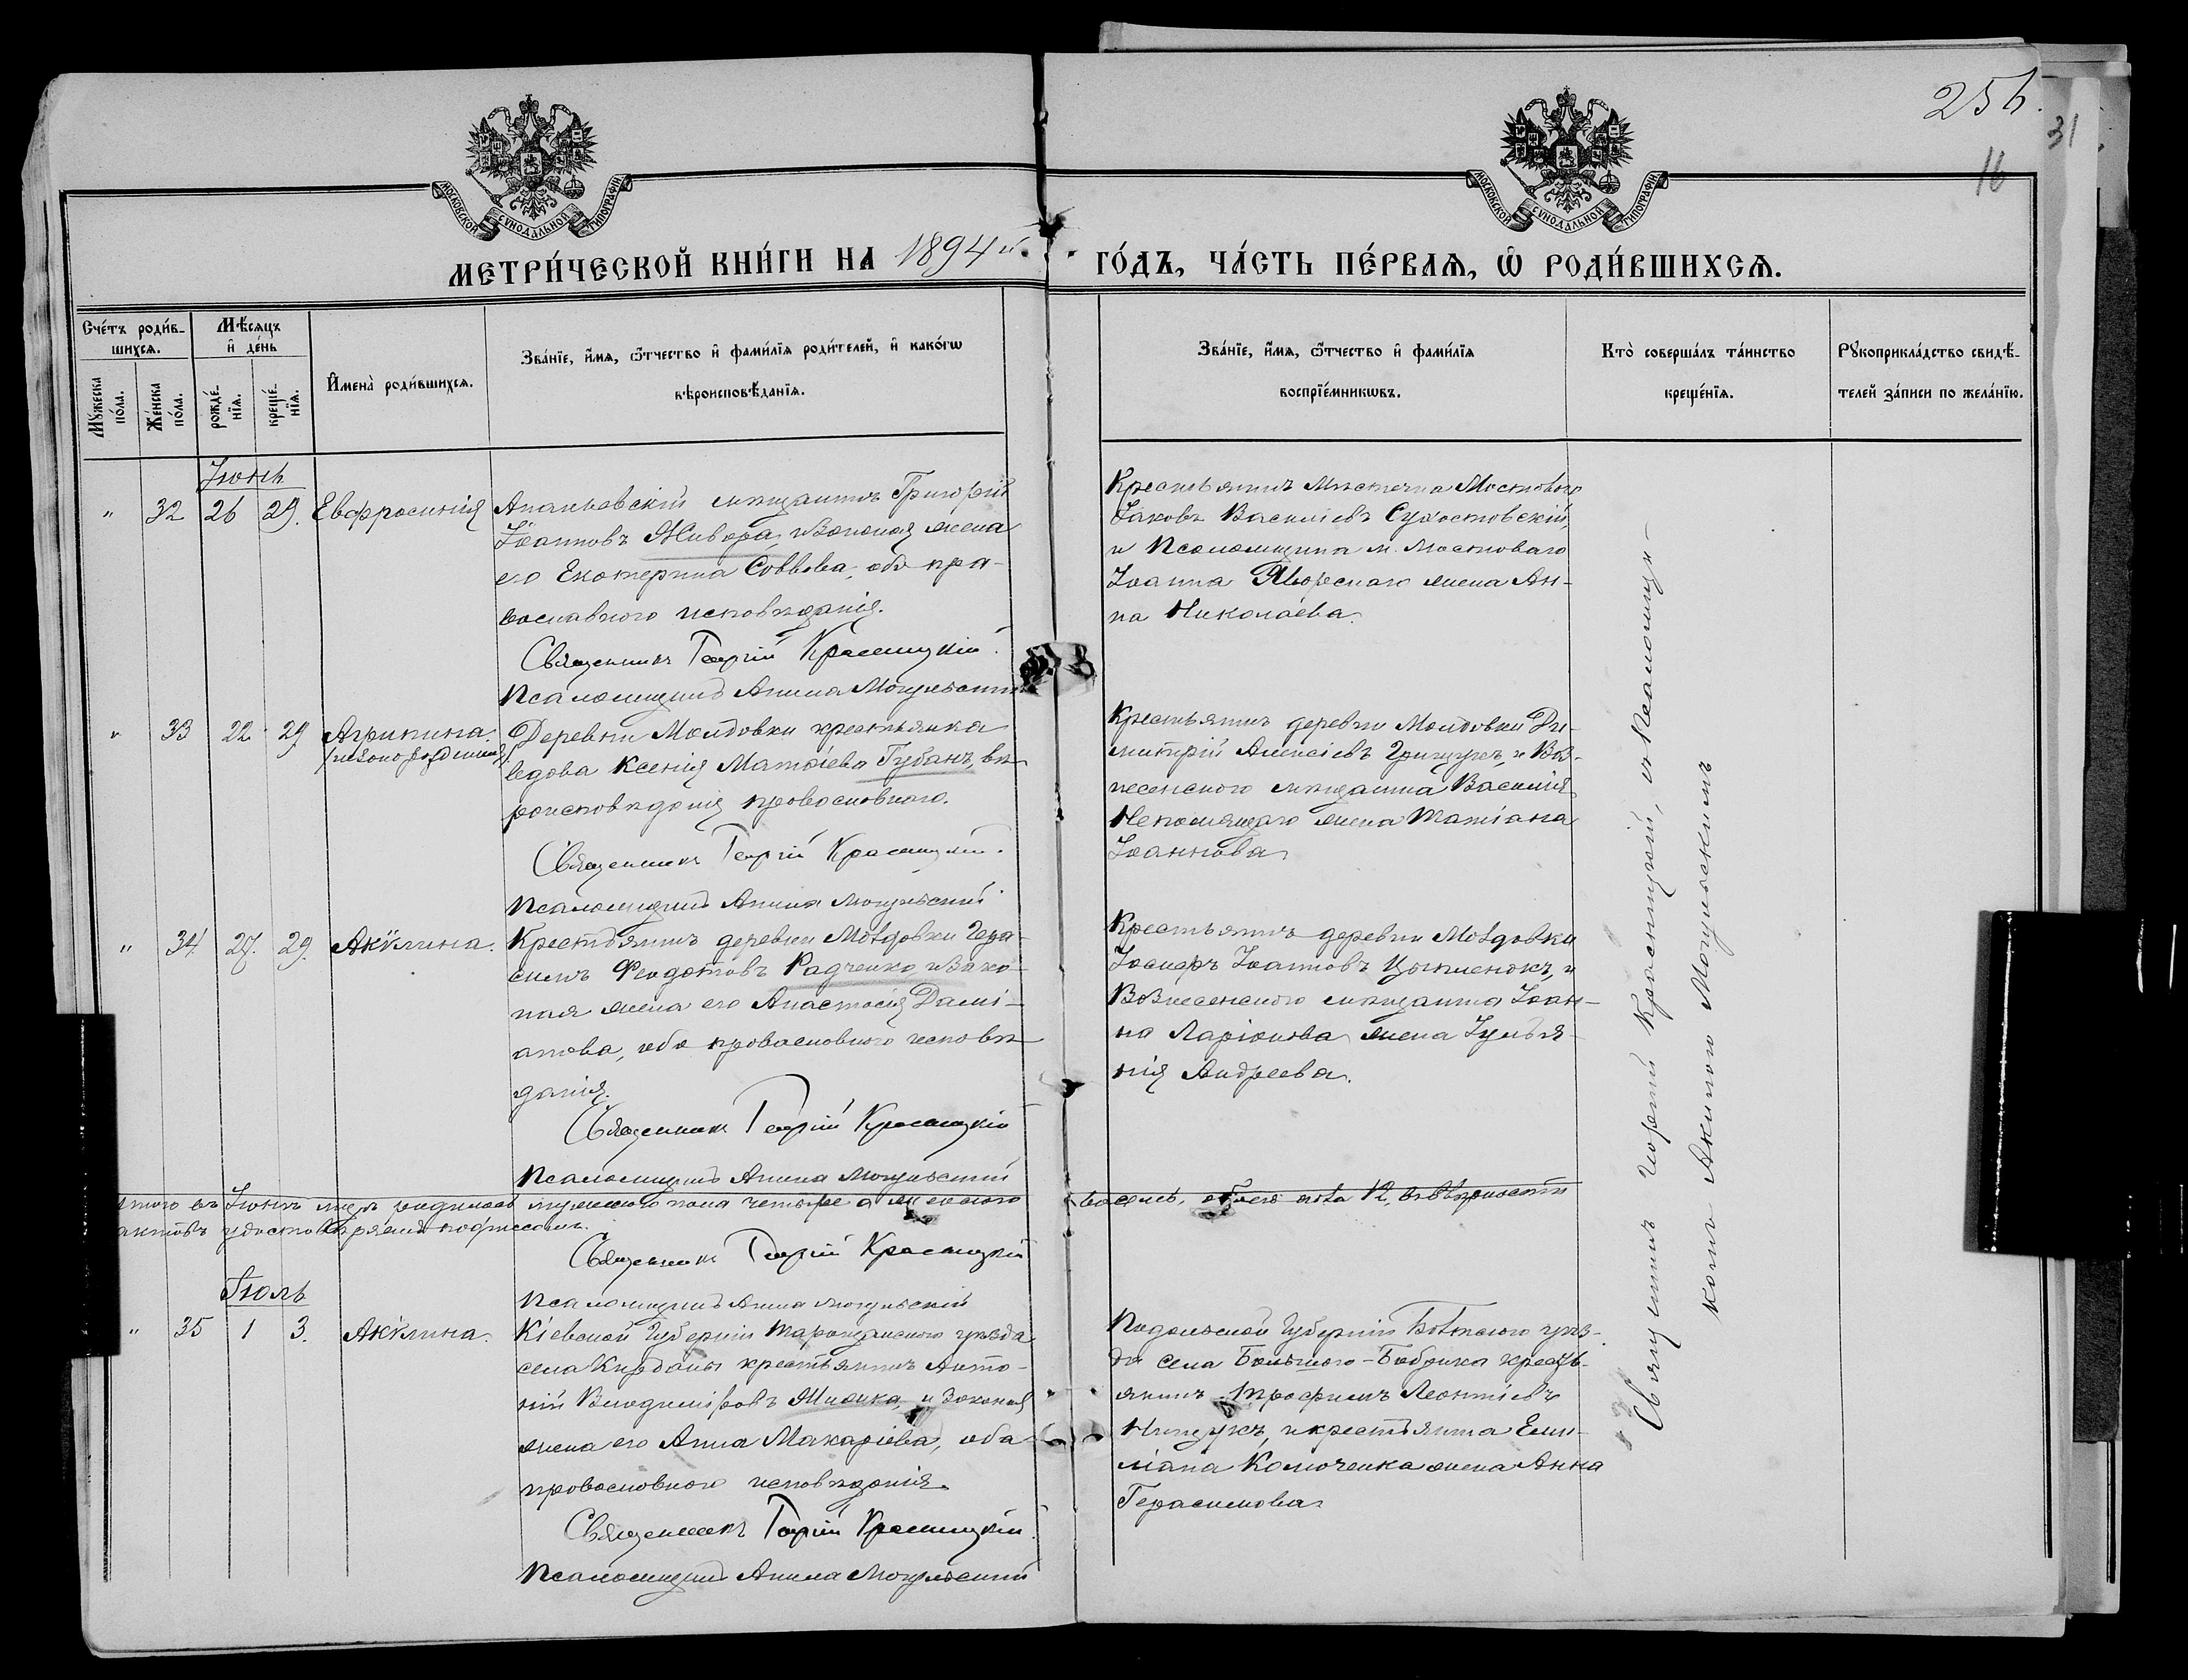 256.
31
16
МОСКОВСКОЙ СУНОДАЛЬНОЙ ТИПОГРАФІИ
МОСКОВСКОЙ СУНОДАЛЬНОЙ ТИПОГРАФІИ
МЕТРИ́ЧЕСКОЙ КНИ́ГИ НА 1894й ГО́ДЪ, ЧА́СТЬ ПЕ́РВАѦ, Ѿ РОДИ́ВШИХСѦ.
Сче́тъ роди́в-
шихсѧ.
Мꙋжеска по́ла.
Же́нска по́ла.
Мѣ́сѧцъ
и҆ де́нь
рожде́-нїѧ.
креще́-нїѧ.
И҆мена̀ роди́вшихсѧ.
Зва́нїе, и҆́мѧ, ѻ҆́тчество и҆ фами́лїѧ роди́телей, и҆ како́гѡ
вѣроисповѣ́данїѧ.
Зва́нїе, и҆́мѧ, ѻ҆́тчество и҆ фами́лїѧ
воспрїе́мникѡвъ.
Кто̀ соверша́лъ та́инство
креще́нїѧ.
Рꙋкоприкла́дство свидѣ́-
телей за́писи по жела́нїю.
Іюнь
" 32 26 29. Евфросинія
Ананьевскій мѣщанинъ Григорій
Іоанновъ Живора, и законная жена
его Екатерина Саввова, оба пра-
вославного исповѣданія.
Священникъ Георгій Красицкій.
Псаломщикъ Акила Могульскій
Крестьянинъ мѣстечка Мостового
Іаковъ Василіевъ Сухостовскій,
и псаломщика м. Мостоваго
Іоанна Яворскаго жена Ан-
на Николаева.
" 33 22 29 Агрипина.
(незаконорожденная)
Деревни Молдовки крестьянка
вдова Ксенія Матѳіева Губанъ, вѣ-
роисповѣданія православного.
Священникъ Георгій Красицкій.
Псаломщикъ Акила Могульскій
Крестьянинъ деревни Молдовки Ди-
митрій Алексіевъ Грищукъ, и Воз-
несенского мѣщанина Василія
Непомящаго жена Татіана
Іоаннова
" 34 27. 29. Акулина.
Крестьянинъ деревни Молдовки Гера-
симъ Ѳеодотовъ Радченко, и зако-
ная жена его Анастасія Дамі-
анова, оба православного исповѣ-
данія.
Священникъ Георгій Красицкій
Псаломщикъ Акила Могульскій
Крестьянинъ деревни Молдовки
Іосифъ Іоанновъ и
Вознесенского мѣщанина Іоан-
на Ларіонова жена Іулья-
нія Андреева.
Итого въ Іюнѣ м-цѣ родилось мужеского пола четыре а женского восемь, обоего пола 12, въ вѣрности
актовъ удостовѣряемъ подписомъ.
Священникъ Георгій Красицкій
Псаломщикъ Акила Могульскій
Іюль
" 35 1 3. Акулина.
Кіевской Губерніи Таращанского уѣзда
села Кирданы крестьянинъ Анто-
ній Владиміровъ и законая
жена его Анна Макаріева, оба
православного исповѣданія.
Священникъ Георгій Красицкій.
Псаломщикъ Акила Могульскій
Подольской Губерніи Балтского уѣз-
да села Большого-Бобрика кресть-
янинъ Трофимъ Леонтіевъ
и крестьянина Еми-
ліана жена Анна
Герасимова
Священникъ Георгій Красицкій, съ псаломщи-
комъ Акилою Могульскимъ